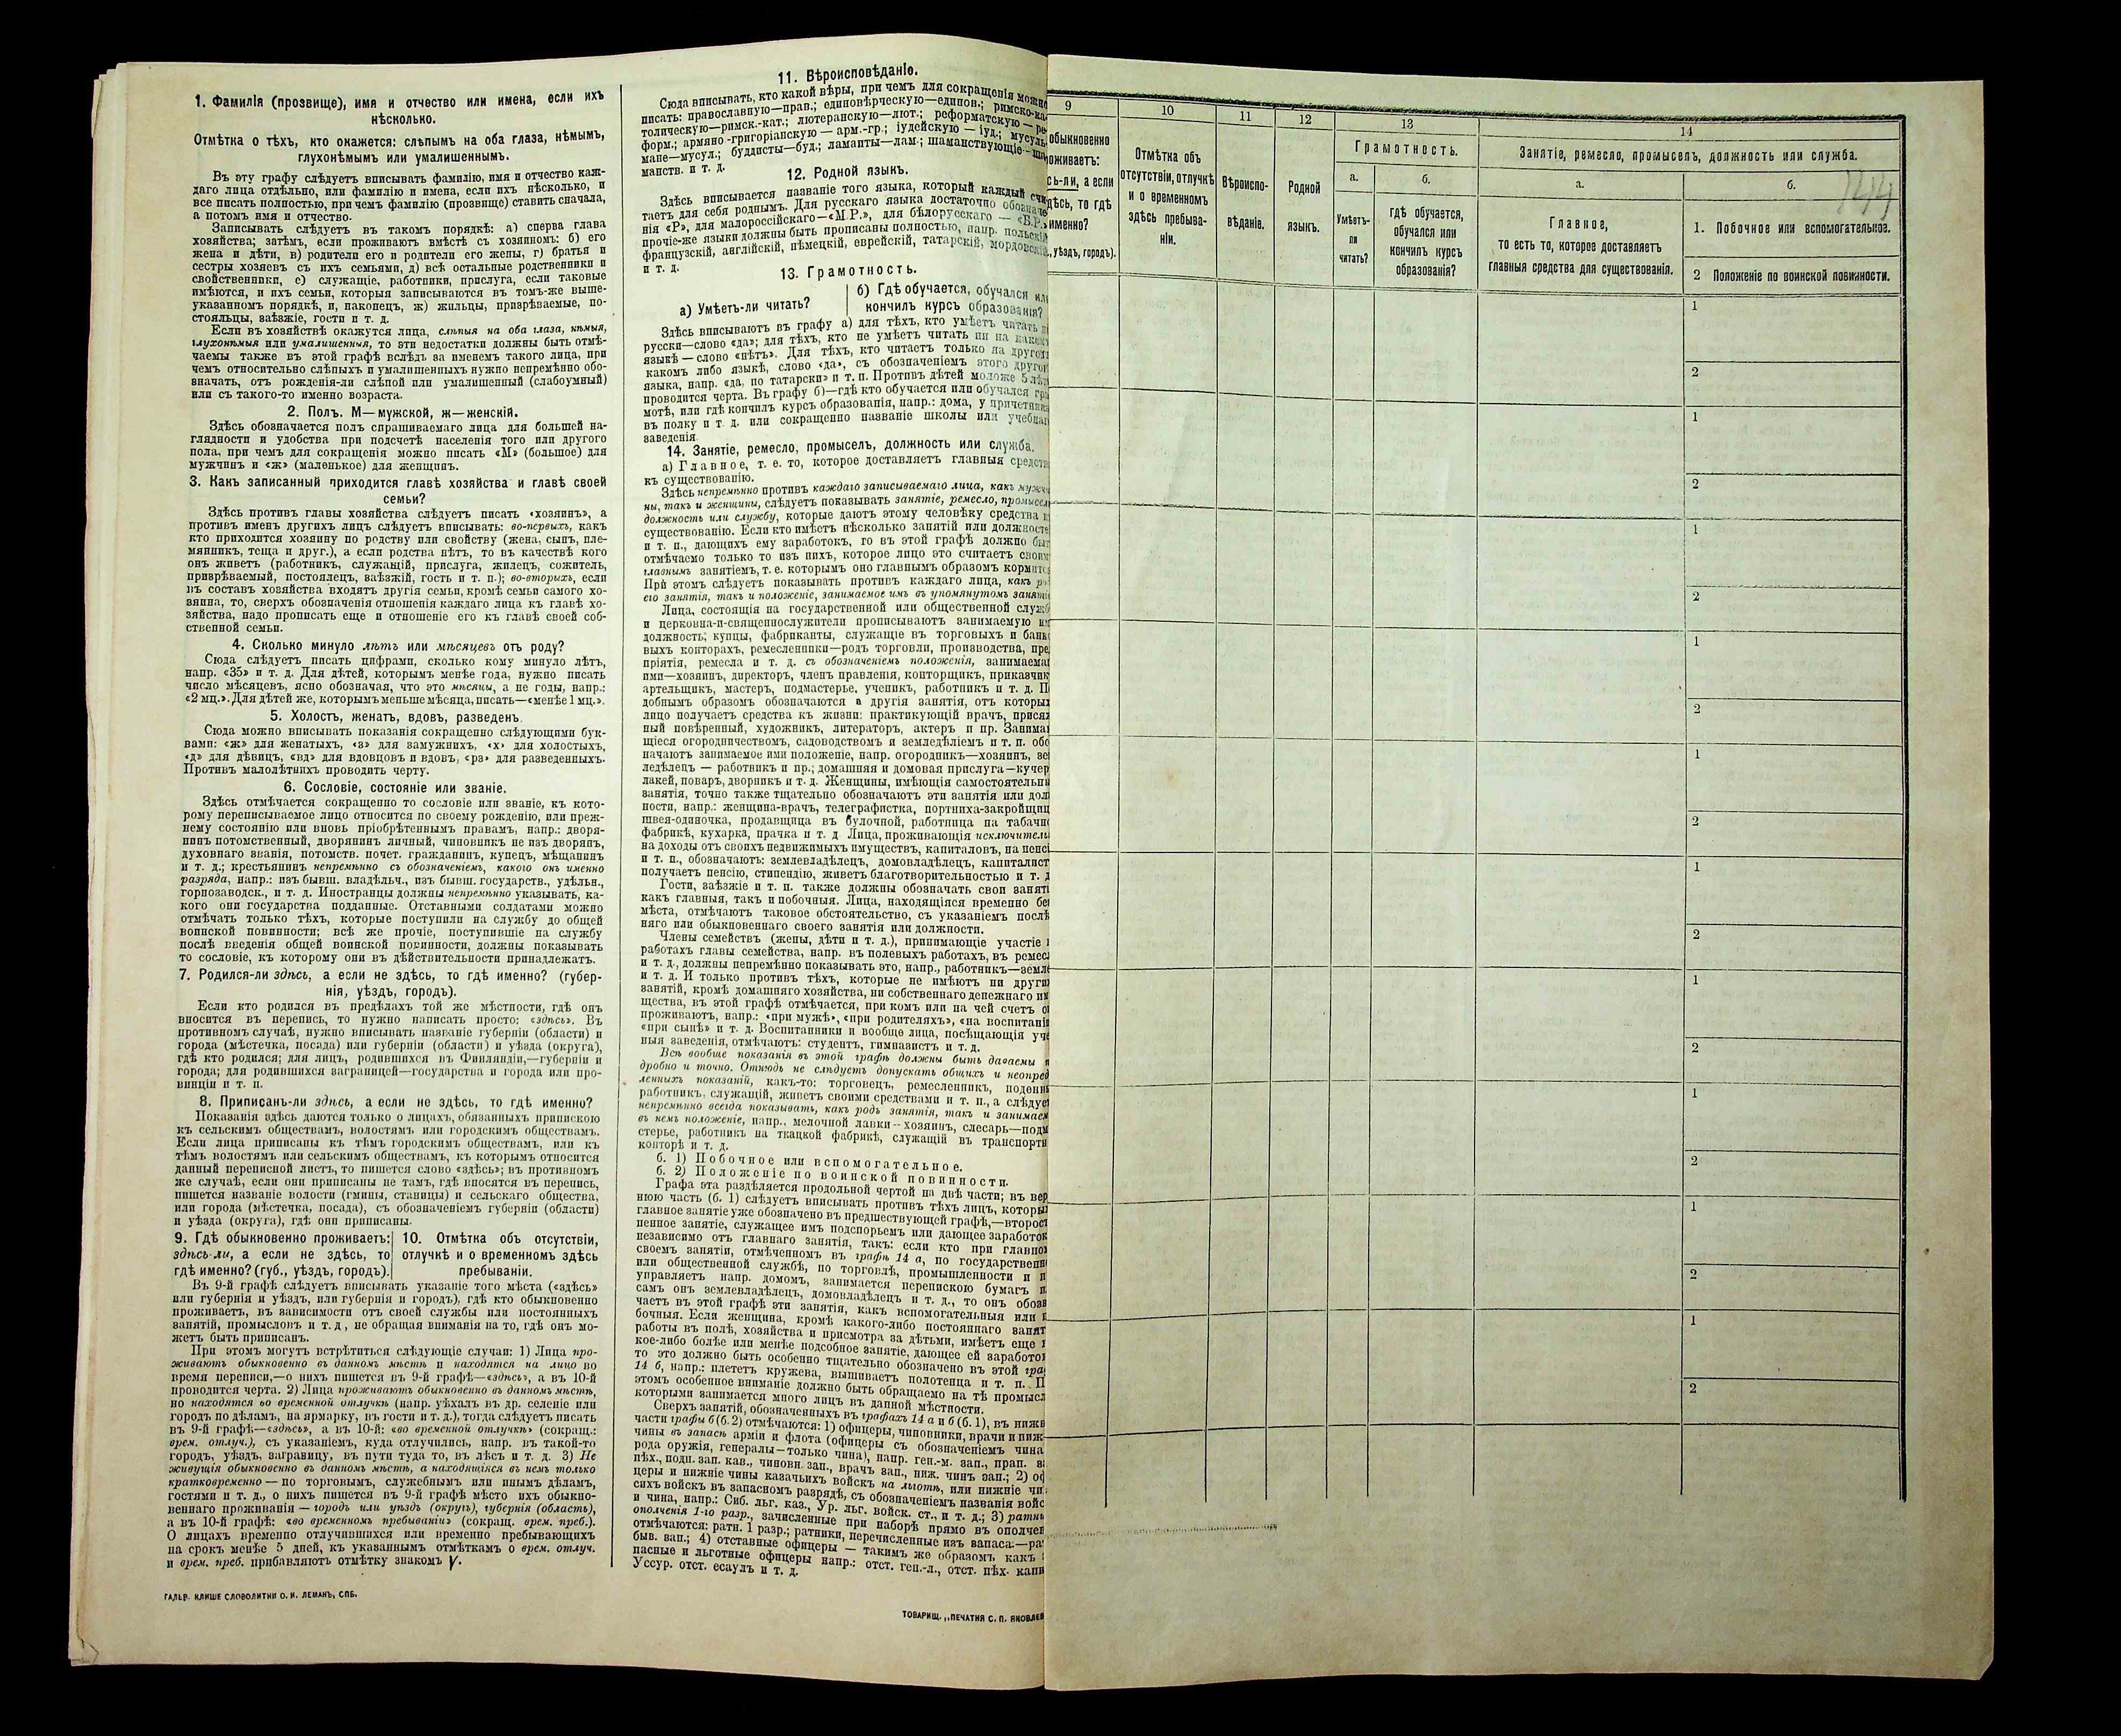 1. Фамилія (прозвище), имя и отчество или имена, если ихъ
нѣсколько.
Отмѣтка о тѣхъ, кто окажется: слѣпымъ на оба глаза, нѣмымъ,
глухонѣмымъ или умалишеннымъ.
Въ эту графу слѣдуетъ вписывать фамилію, имя и отчество каж-
даго лица отдѣльно, или фамилію и имена, если ихъ нѣсколько, и
все писать полностью, при чемъ фамилію (прозвище) ставить сначала,
а потомъ имя и отчество.
Записывать слѣдуетъ въ такомъ порядкѣ: а) сперва глава
хозяйства; затѣмъ, если проживаютъ вмѣстѣ съ хозяиномъ: б) его
жена и дѣти, в) родители его и родители его жены, г) братья и
сестры хозяевъ съ ихъ семьями, д) всѣ остальные родственники и
свойственники, е) служащіе, работники, прислуга, если таковые
имѣются, и ихъ семьи, которыя записываются въ томъ-же выше-
указанномъ порядкѣ, и, наконецъ, ж) жильцы, призрѣваемые, по-
стояльцы, заѣзжіе, гости и т. д.
Если въ хозяйствѣ окажутся лица, слѣпыя на оба глаза, нѣмыя,
глухонѣмыя или умалишенныя, то эти недостатки должны быть отмѣ-
чаемы также въ этой графѣ вслѣдъ за именемъ такого лица, при
чемъ относительно слѣпыхъ и умалишенныхъ нужно непремѣнно обо-
значать, отъ рожденія-ли слѣпой или умалишенный (слабоумный)
или съ такого-то именно возраста.
2. Полъ. М—мужской, ж—женскій.
Здѣсь обозначается полъ спрашиваемаго лица для большей на-
глядности и удобства при подсчетѣ населенія того или другого
пола, при чемъ для сокращенія можно писать «М» (большое) для
мужчинъ и «ж» (маленькое) для женщинъ.
3. Какъ записанный приходится главѣ хозяйства и главѣ своей
семьи?
Здѣсь противъ главы хозяйства слѣдуетъ писать «хозяинъ», а
противъ именъ другихъ лицъ слѣдуетъ вписывать: во-первыхъ, какъ
кто приходится хозяину по родству или свойству (жена, сынъ, пле-
мянникъ, теща и друг.), а если родства нѣтъ, то въ качествѣ кого
онъ живетъ (работникъ, служащій, прислуга, жилецъ, сожитель,
призрѣваемый, постоялецъ, заѣзжій, гость и т. п.); во-вторыхъ, если
въ составъ хозяйства входятъ другія семьи, кромѣ семьи самого хо-
зяина, то, сверхъ обозначенія отношенія каждаго лица къ главѣ хо-
зяйства, надо прописать еще и отношеніе его къ главѣ своей соб-
ственной семьи.
4. Сколько минуло лѣтъ или мѣсяцевъ отъ роду?
Сюда слѣдуетъ писать цифрами, сколько кому минуло лѣтъ,
напр. «35» и т. д. Для дѣтей, которымъ менѣе года, нужно писать
число мѣсяцевъ, ясно обозначая, что это мѣсяцы, а не годы, напр.:
«2 мц.». Для дѣтей же, которымъ меньше мѣсяца, писать—«менѣе 1 мц.».
5. Холостъ, женатъ, вдовъ, разведенъ.
Сюда можно вписывать показанія сокращенно слѣдующими бук-
вами: «ж» для женатыхъ, «з» для замужнихъ, «х» для холостыхъ,
«д» для дѣвицъ, «вд» для вдовцовъ и вдовъ, «рз» для разведенныхъ.
Противъ малолѣтнихъ проводить черту.
6. Сословіе, состояніе или званіе.
Здѣсь отмѣчается сокращенно то сословіе или званіе, къ кото-
рому переписываемое лицо относится по своему рожденію, или преж-
нему состоянію или вновь пріобрѣтеннымъ правамъ, напр.: дворя-
нинъ потомственный, дворянинъ личный, чиновникъ не изъ дворянъ,
духовнаго званія, потомств. почет. гражданинъ, купецъ, мѣщанинъ
и т. д.; крестьянинъ непремѣнно съ обозначеніемъ, какого онъ именно
разряда, напр.: изъ бывш. владѣльч., изъ бывш. государств., удѣльн.,
горнозаводск., и т. д. Иностранцы должны непремѣнно указывать, ка-
кого они государства подданные. Отставными солдатами можно
отмѣчать только тѣхъ, которые поступили на службу до общей
воинской повинности; всѣ же прочіе, поступившіе на службу
послѣ введенія общей воинской повинности, должны показывать
то сословіе, къ которому они въ дѣйствительности принадлежатъ.
7. Родился-ли здѣсь, а если не здѣсь, то гдѣ именно? (губер-
нія, уѣздъ, городъ).
Если кто родился въ предѣлахъ той же мѣстности, гдѣ онъ
вносится въ перепись, то нужно написать просто: «здѣсь». Въ
противномъ случаѣ, нужно вписывать названіе губерніи (области) и
города (мѣстечка, посада) или губерніи (области) и уѣзда (округа),
гдѣ кто родился; для лицъ, родившихся въ Финляндіи,—губерніи и
города; для родившихся заграницей—государства и города или про-
винціи и т. п.
8. Приписанъ-ли здѣсь, а если не здѣсь, то гдѣ именно?
Показанія здѣсь даются только о лицахъ, обязанныхъ припискою
къ сельскимъ обществамъ, волостямъ или городскимъ обществамъ.
Если лица приписаны къ тѣмъ городскимъ обществамъ, или къ
тѣмъ волостямъ или сельскимъ обществамъ, къ которымъ относится
данный переписной листъ, то пишется слово «здѣсь»; въ противномъ
же случаѣ, если они приписаны не тамъ, гдѣ вносятся въ перепись,
пишется названіе волости (гмины, станицы) и сельскаго общества,
или города (мѣстечка, посада), съ обозначеніемъ губерніи (области)
и уѣзда (округа), гдѣ они приписаны.
9. Гдѣ обыкновенно проживаетъ:
здѣсь-ли, а если не здѣсь, то
гдѣ именно? (губ., уѣздъ, городъ).
10. Отмѣтка объ отсутствіи,
отлучкѣ и о временномъ здѣсь
пребываніи.
Въ 9-й графѣ слѣдуетъ вписывать указаніе того мѣста («здѣсь»
или губернія и уѣздъ, или губернія и городъ), гдѣ кто обыкновенно
проживаетъ, въ зависимости отъ своей службы или постоянныхъ
занятій, промысловъ и т. д., не обращая вниманія на то, гдѣ онъ мо-
жетъ быть приписанъ.
При этомъ могутъ встрѣтиться слѣдующіе случаи: 1) Лица про-
живаютъ обыкновенно въ данномъ мѣстѣ и находятся на лицо во
время переписи,—о нихъ пишется въ 9-й графѣ—«здѣсь», а въ 10-й
проводится черта. 2) Лица проживаютъ обыкновенно въ данномъ мѣстѣ,
но находятся во временной отлучкѣ (напр. уѣхалъ въ др. селеніе или
городъ по дѣламъ, на ярмарку, въ гости и т. д.), тогда слѣдуетъ писать
въ 9-й графѣ—«здѣсь», а въ 10-й: «во временной отлучкѣ» (сокращ.:
врем. отлуч.), съ указаніемъ, куда отлучились, напр. въ такой-то
городъ, уѣздъ, заграницу, въ пути туда то, въ лѣсъ и т. д. 3) Не
живущія обыкновенно въ данномъ мѣстѣ, а находящіяся въ немъ только
кратковременно — по торговымъ, служебнымъ или инымъ дѣламъ,
гостями и т. д., о нихъ пишется въ 9-й графѣ мѣсто ихъ обыкно-
веннаго проживанія — городъ или уѣздъ (округъ), губернія (область),
а въ 10-й графѣ: «во временномъ пребываніи» (сокращ. врем. преб.).
О лицахъ временно отлучившихся или временно пребывающихъ
на срокъ менѣе 5 дней, къ указаннымъ отмѣткамъ о врем. отлуч.
и врем. преб. прибавляютъ отмѣтку знакомъ V.
ГАЛЬВ. КЛИШЕ СЛОВОЛИТНИ О. И. ЛЕМАНЪ, СПБ.
11. Вѣроисповѣданіе.
Сюда вписывать, кто какой вѣры, при чемъ для сокращенія можно
писать: православную—прав.; единовѣрческую—единов.; римско-ка-
толическую—римск.-кат.; лютеранскую—лют.; реформатскую — ре-
форм.; армяно-григоріанскую — арм.-гр.; іудейскую — іуд.; мусуль-
мане—мусул.; буддисты—буд.; ламаиты—лам.; шаманствующіе—ша-
манств. и т. д.
12. Родной языкъ.
Здѣсь вписывается названіе того языка, который каждый счи-
таетъ для себя роднымъ. Для русскаго языка достаточно обозначе-
нія «Р», для малороссійскаго—«М.Р.», для бѣлорусскаго — «Б.Р.»
прочіе-же языки должны быть прописаны полностью, напр. польскій
французскій, англійскій, нѣмецкій, еврейскій, татарскій, мордовскій,
и т. д.
13. Грамотность.
а) Умѣетъ-ли читать?
б) Гдѣ обучается, обучался или
кончилъ курсъ образованія?
Здѣсь вписываютъ въ графу а) для тѣхъ, кто умѣетъ читать по
русски—слово «да»; для тѣхъ, кто не умѣетъ читать ни на какомъ
языкѣ — слово «нѣтъ». Для тѣхъ, кто читаетъ только на другомъ
какомъ либо языкѣ, слово «да», съ обозначеніемъ этого другог
языка, напр. «да, по татарски» и т. п. Противъ дѣтей моложе 5 лѣтъ
проводится черта. Въ графу б)—гдѣ кто обучается или обучался гра
мотѣ, или гдѣ кончилъ курсъ образованія, напр.: дома, у причетника
въ полку и т. д. или сокращенно названіе школы или учебнаг
заведенія.
14. Занятіе, ремесло, промыселъ, должность или служба.
а) Главное, т. е. то, которое доставляетъ главныя средств
къ существованію.
Здѣсь непремѣнно противъ каждаго записываемаго лица, какъ мужчи
ны, такъ и женщины, слѣдуетъ показывать занятіе, ремесло, промысел
должность или службу, которые даютъ этому человѣку средства к
существованію. Если кто имѣетъ нѣсколько занятій или должносте
и т. п., дающихъ ему заработокъ, то въ этой графѣ должно быт
отмѣчаемо только то изъ нихъ, которое лицо это считаетъ своим
главнымъ занятіемъ, т. е. которымъ оно главнымъ образомъ кормитс
При этомъ слѣдуетъ показывать противъ каждаго лица, какъ ро
его занятія, такъ и положеніе, занимаемое имъ въ упомянутомъ занятіи
Лица, состоящія на государственной или общественной служб
и церковно-и-священнослужители прописываютъ занимаемую им
должность; купцы, фабриканты, служащіе въ торговыхъ и банко
выхъ конторахъ, ремесленники—родъ торговли, производства, пред
пріятія, ремесла и т. д. съ обозначеніемъ положенія, занимаемаг
ими—хозяинъ, директоръ, членъ правленія, конторщикъ, приказчик
артельщикъ, мастеръ, подмастерье, ученикъ, работникъ и т. д. По
добнымъ образомъ обозначаются и другія занятія, отъ которых
лицо получаетъ средства къ жизни: практикующій врачъ, присяж
ный повѣренный, художникъ, литераторъ, актеръ и пр. Занимаю
щіеся огородничествомъ, садоводствомъ и земледѣліемъ и т. п. обо
начаютъ занимаемое ими положеніе, напр. огородникъ—хозяинъ, зем
ледѣлецъ — работникъ и пр.; домашняя и домовая прислуга—кучер
лакей, поваръ, дворникъ и т. д. Женщины, имѣющія самостоятельны
занятія, точно также тщательно обозначаютъ эти занятія или дол
ности, напр.: женщина-врачъ, телеграфистка, портниха-закройщиц
швея-одиночка, продавщица въ булочной, работница на табачно
фабрикѣ, кухарка, прачка и т. д. Лица, проживающія исключитель
на доходы отъ своихъ недвижимыхъ имуществъ, капиталовъ, на пенсі
и т. п., обозначаютъ: землевладѣлецъ, домовладѣлецъ, капиталист
получаетъ пенсію, стипендію, живетъ благотворительностью и т. д
Гости, заѣзжіе и т. п. также должны обозначать свои заняті
какъ главныя, такъ и побочныя. Лица, находящіяся временно без
мѣста, отмѣчаютъ таковое обстоятельство, съ указаніемъ послѣ
няго или обыкновеннаго своего занятія или должности.
Члены семействъ (жены, дѣти и т. д.), принимающіе участіе в
работахъ главы семейства, напр. въ полевыхъ работахъ, въ ремесл
и т. д., должны непремѣнно показывать это, напр., работникъ—земле
и т. д. И только противъ тѣхъ, которые не имѣютъ ни других
занятій, кромѣ домашняго хозяйства, ни собственнаго денежнаго им
щества, въ этой графѣ отмѣчается, при комъ или на чей счетъ он
проживаютъ, напр.: «при мужѣ», «при родителяхъ», «на воспитаніи
«при сынѣ» и т. д. Воспитанники и вообще лица, посѣщающія уче
ныя заведенія, отмѣчаютъ: студентъ, гимназистъ и т. д.
Всѣ вообще показанія въ этой графѣ должны быть даваемы п
дробно и точно. Отнюдь не слѣдуетъ допускать общихъ и неопред
ленныхъ показаній, какъ-то: торговецъ, ремесленникъ, поденны
работникъ, служащій, живетъ своими средствами и т. п., а слѣдует
непремѣнно всегда показывать, какъ родъ занятія, такъ и занимаем
въ немъ положеніе, напр., мелочной лавки—хозяинъ, слесарь—подм
стерье, работникъ на ткацкой фабрикѣ, служащій въ транспортн
конторѣ и т. д.
б. 1) Побочное или вспомогательное.
б. 2) Положеніе по воинской повинности.
Графа эта раздѣляется продольной чертой на двѣ части; въ вер
нюю часть (б. 1) слѣдуетъ вписывать противъ тѣхъ лицъ, которы
главное занятіе уже обозначено въ предшествующей графѣ,—второст
пенное занятіе, служащее имъ подспорьемъ или дающее заработок
независимо отъ главнаго занятія, такъ: если кто при главном
своемъ занятіи, отмѣченномъ въ графѣ 14 а, по государственн
или общественной службѣ, по торговлѣ, промышленности и п
управляетъ напр. домомъ, занимается перепискою бумагъ и
самъ онъ землевладѣлецъ, домовладѣлецъ и т. д., то онъ обозн
чаетъ въ этой графѣ эти занятія, какъ вспомогательныя или п
бочныя. Если женщина, кромѣ какого-либо постояннаго занят
работы въ полѣ, хозяйства и присмотра за дѣтьми, имѣетъ еще к
кое-либо болѣе или менѣе подсобное занятіе, дающее ей заработо
то это должно быть особенно тщательно обозначено въ этой гра
14 б, напр.: плететъ кружева, вышиваетъ полотенца и т. п. П
этомъ особенное вниманіе должно быть обращаемо на тѣ промысл
которыми занимается много лицъ въ данной мѣстности.
Сверхъ занятій, обозначенныхъ въ графахъ 14 а и б (б. 1), въ нижн
части графы б (б. 2) отмѣчаются: 1) офицеры, чиновники, врачи и ниж
чины въ запасѣ арміи и флота (офицеры съ обозначеніемъ чина
рода оружія, генералы—только чина), напр. ген.-м. зап., прап. за
пѣх., подп. зап. кав., чиновн. зап., врачъ зап., ниж. чинъ зап.; 2) оф
церы и нижніе чины казачьихъ войскъ на льготѣ, или нижніе чи
сихъ войскъ въ запасномъ разрядѣ, съ обозначеніемъ названія войс
и чина, напр.: Сиб. льг. каз., Ур. льг. войск. ст., и т. д.; 3) ратни
ополченія 1-го разр., зачисленные при наборѣ прямо въ ополчен
отмѣчаются: ратн. 1 разр.; ратники, перечисленные изъ запаса:—ра
быв. зап.; 4) отставные офицеры — такимъ же образомъ какъ
пасные и льготные офицеры напр.: отст. ген.-л., отст. пѣх. капи
Уссур. отст. есаулъ и т. д.
ТОВАРИЩ. „ПЕЧАТНЯ С. П. ЯКОВЛЕВ
9
обыкновенно
оживаетъ:
сь-ли, а если
дѣсь, то гдѣ
именно?
, уѣздъ, городъ).
10
Отмѣтка объ
отсутствіи, отлучкѣ
и о временномъ
здѣсь пребыва-
ніи.
11
Вѣроиспо-
вѣданіе.
12
Родной
языкъ.
13
Грамотность.
а.
Умѣетъ-
ли
читать?
б.
гдѣ обучается,
обучался или
кончилъ курсъ
образованія?
14
Занятіе, ремесло, промыселъ, должность или служба.
а.
Главное,
то есть то, которое доставляетъ
главныя средства для существованія.
б.
144
1. Побочное или вспомогательное.
2 Положеніе по воинской повинности.
1
2
1
2
1
2
1
2
1
2
1
2
1
2
1
2
1
2
1
2